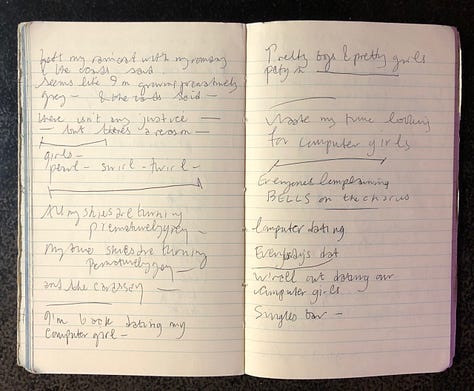 Left my raincoat with my romany
& the cards said
seems like I'm growing prematurely
grey — & the cards said —
there isn't any justice —
— but there's a reason —
girls —
pearl — swirl — twirl —
All my skies are turning
prematurely grey —
My two skies are turning
Prematurely grey —
and the cards say —
back dating my
computer girl —
Pretty boys & pretty girls
waste my time looking
for computer girls
Everyones complaining
BELLS on the chorus
Computer dating
Everybody's dat
We're all out dating our
computer girls
Singles bar —